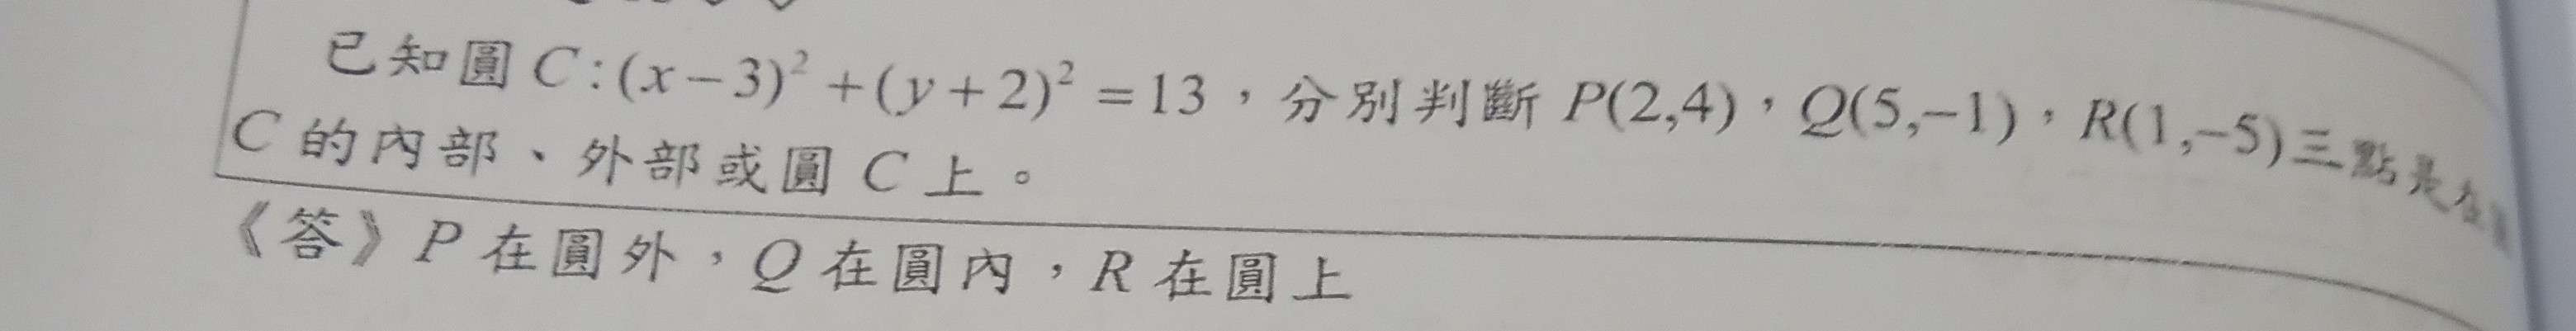 已知圓 C:(x-3)² +(y+2)² =13,分別判斷 P(2,4),Q(5,-1),R(1,-5)三點是在
C 的內部、外部或圓 C 上。
《答》P 在圓外,Q 在圓內,R 在圓上